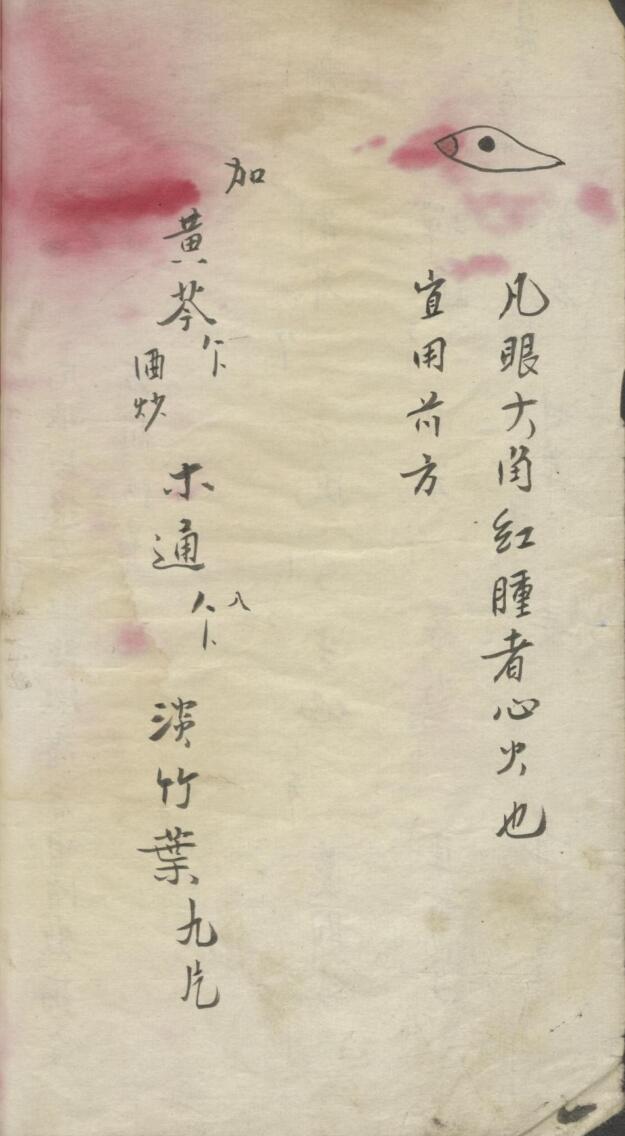 凡眼大角紅腫者心火也
宜用前方
加
黃芩
酒炒
木通
淡竹葉九片